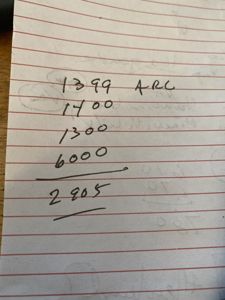 1399 ARC
1400
1300
6000
2905